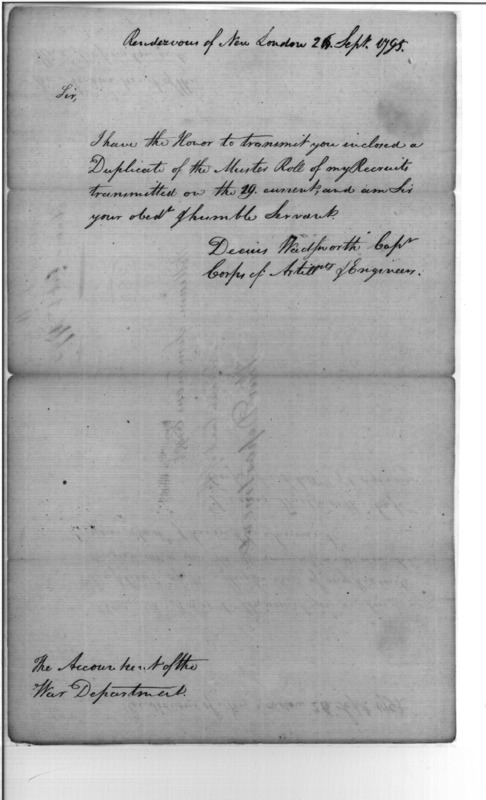 Rendezvous of New London 26. Sept. 1795.
Sir,
I have the Honor to transmit you inclosed a
Duplicate of the Muster Roll of my Recruits
transmitted on the 29. current; and am Sir
your obedt. & humble Servant.
Decius Wadsworth Capt
Corps of Artillrts & Engineers.
The Accountant of the
War Department.